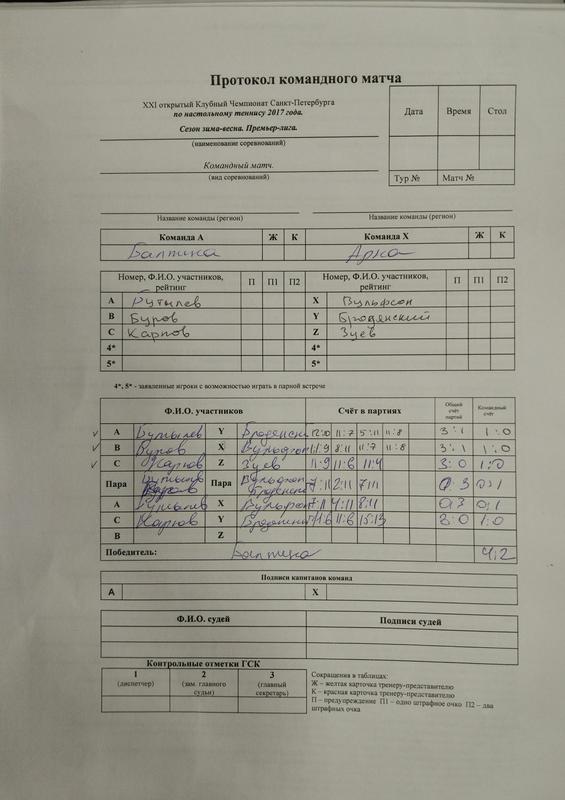 Протокол командного матча
XXI открытый Клубный Чемпионат Санкт-Петербурга
по настольному теннису 2017 года.
Сезон зима-весна. Премьер-лига.
(наименование соревнований)
Командный матч.
(вид соревнований)
Дата Время Стол
Тур № Матч №
Название команды (регион) Название команды (регион)
Команда А Ж К Команда X Ж К
Балтика Арка
Номер, Ф.И.О. участников, рейтинг П П1 П2 Номер, Ф.И.О. участников, рейтинг П П1 П2
A Бутылев X Вульфсон
B Буров Y Бродянский
C Карпов Z Зуев
4* 4*
5* 5*
4*, 5* - заявленные игроки с возможностью играть в парной встрече
Ф.И.О. участников Счёт в партиях Общий счёт партий Командный счёт
A Бутылев Y Бродянски 12:10 11:7 5:11 11:8 3:1 1:0
B Буров X Вульфсон 11:9 8:11 11:7 11:8 3:1 1:0
C Карпов Z Зуев 11:9 11:6 11:4 3:0 1:0
Пара Бутылев Пара Вульфсон 7:11 2:11 7:11 0:3 0:1
A Бутылев X Вульфсон 7:11 4:11 8:11 0:3 0:1
C Карпов Y 11:6 11:6 15:13 3:0 1:0
B Z
Победитель: Балтика 4:2
Подписи капитанов команд
A X
Ф.И.О. судей Подписи судей
Контрольные отметки ГСК
1 (диспетчер) 2 (зам. главного судьи) 3 (главный секретарь)
Сокращения в таблицах:
Ж – желтая карточка тренеру-представителю
К – красная карточка тренеру-представителю
П – предупреждение П1 – одно штрафное очко П2 – два
штрафных очка